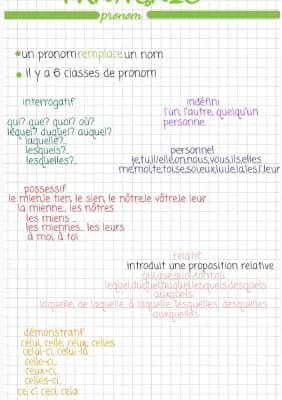 FRANÇAIS
pronom
un pronom remplace un nom
il y a 6 classes de pronom
interrogatif
qui? que? quoi? où?
lequel? duquel? auquel?
laquelle?...
lesquels?...
lesquelles?...
indéfini
l'un, l'autre, quelqu'un
personne...
personnel
je,tu,il/elle,on,nous,vous,ils,elles
me,moi,te,toi,se,soi,eux,lui,le,la,les,l',leur
possessif
le mien,le tien, le sien, le nôtre,le vôtre,le leur
la mienne... les nôtres
les miens ...
les miennes... les leurs
à moi, à toi
relatif
introduit une proposition relative
qui,que,quoi,dont,où
lequel,duquel,auquel,lesquels,desquels
auxquels
laquelle, de laquelle, à laquelle, lesquelles, desquelles
auxquelles
démonstratif
celui, celle, ceux, celles
celui-ci, celui-là
celle-ci...
ceux-ci...
celles-ci...
ce, c', ceci, cela